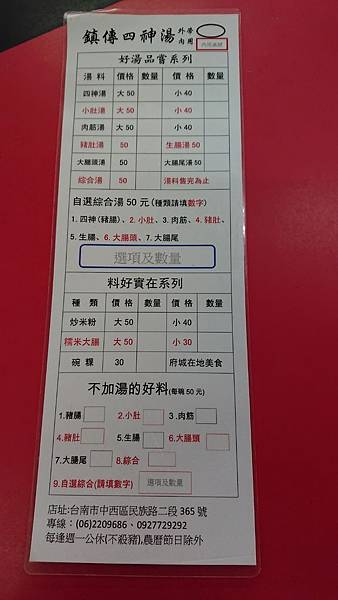 鎮傳四神湯 外帶 內用
好湯品嘗系列
湯料 價格 數量 價格 數量
四神湯 大 50 小 40
小肚湯 大 50 小 40
肉筋湯 大 50 小 40
豬肚湯 50 生腸湯 50
大腸頭湯 50 大腸尾湯 50
綜合湯 50 湯料售完為止
自選綜合湯 50 元(種類請填數字)
1.四神(豬腸)、2.小肚、3.肉筋、4.豬肚、
5.生腸、6.大腸頭、7.大腸尾
選項及數量
料好實在系列
種類 價格 數量 價格 數量
炒米粉 大 50 小 40
糯米大腸 大 50 小 30
碗粿 30 府城在地美食
不加湯的好料(每碗 50 元)
1.豬腸 2.小肚 3.肉筋
4.豬肚 5.生腸 6.大腸頭
7.大腸尾 8.綜合
9.自選綜合(請填數字) 選項及數量
店址:台南市中西區民族路二段 365 號
專線:(06)2209686、0927729292
每逢週一公休(不殺豬),農曆節日除外